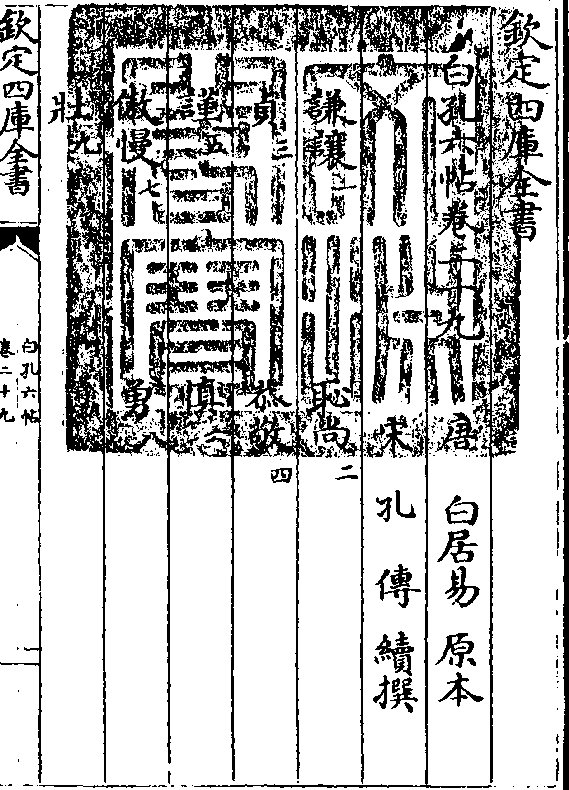 欽定四庫全書
白孔六帖卷二十九
唐 白居易 原本
宋 孔傳 續撰
謙讓一 恥尚二
貞三 恭敬四
謹五 慎六
傲慢七 勇八
壯九
欽定四庫全書
白孔六帖
卷二十九
文淵閣寶